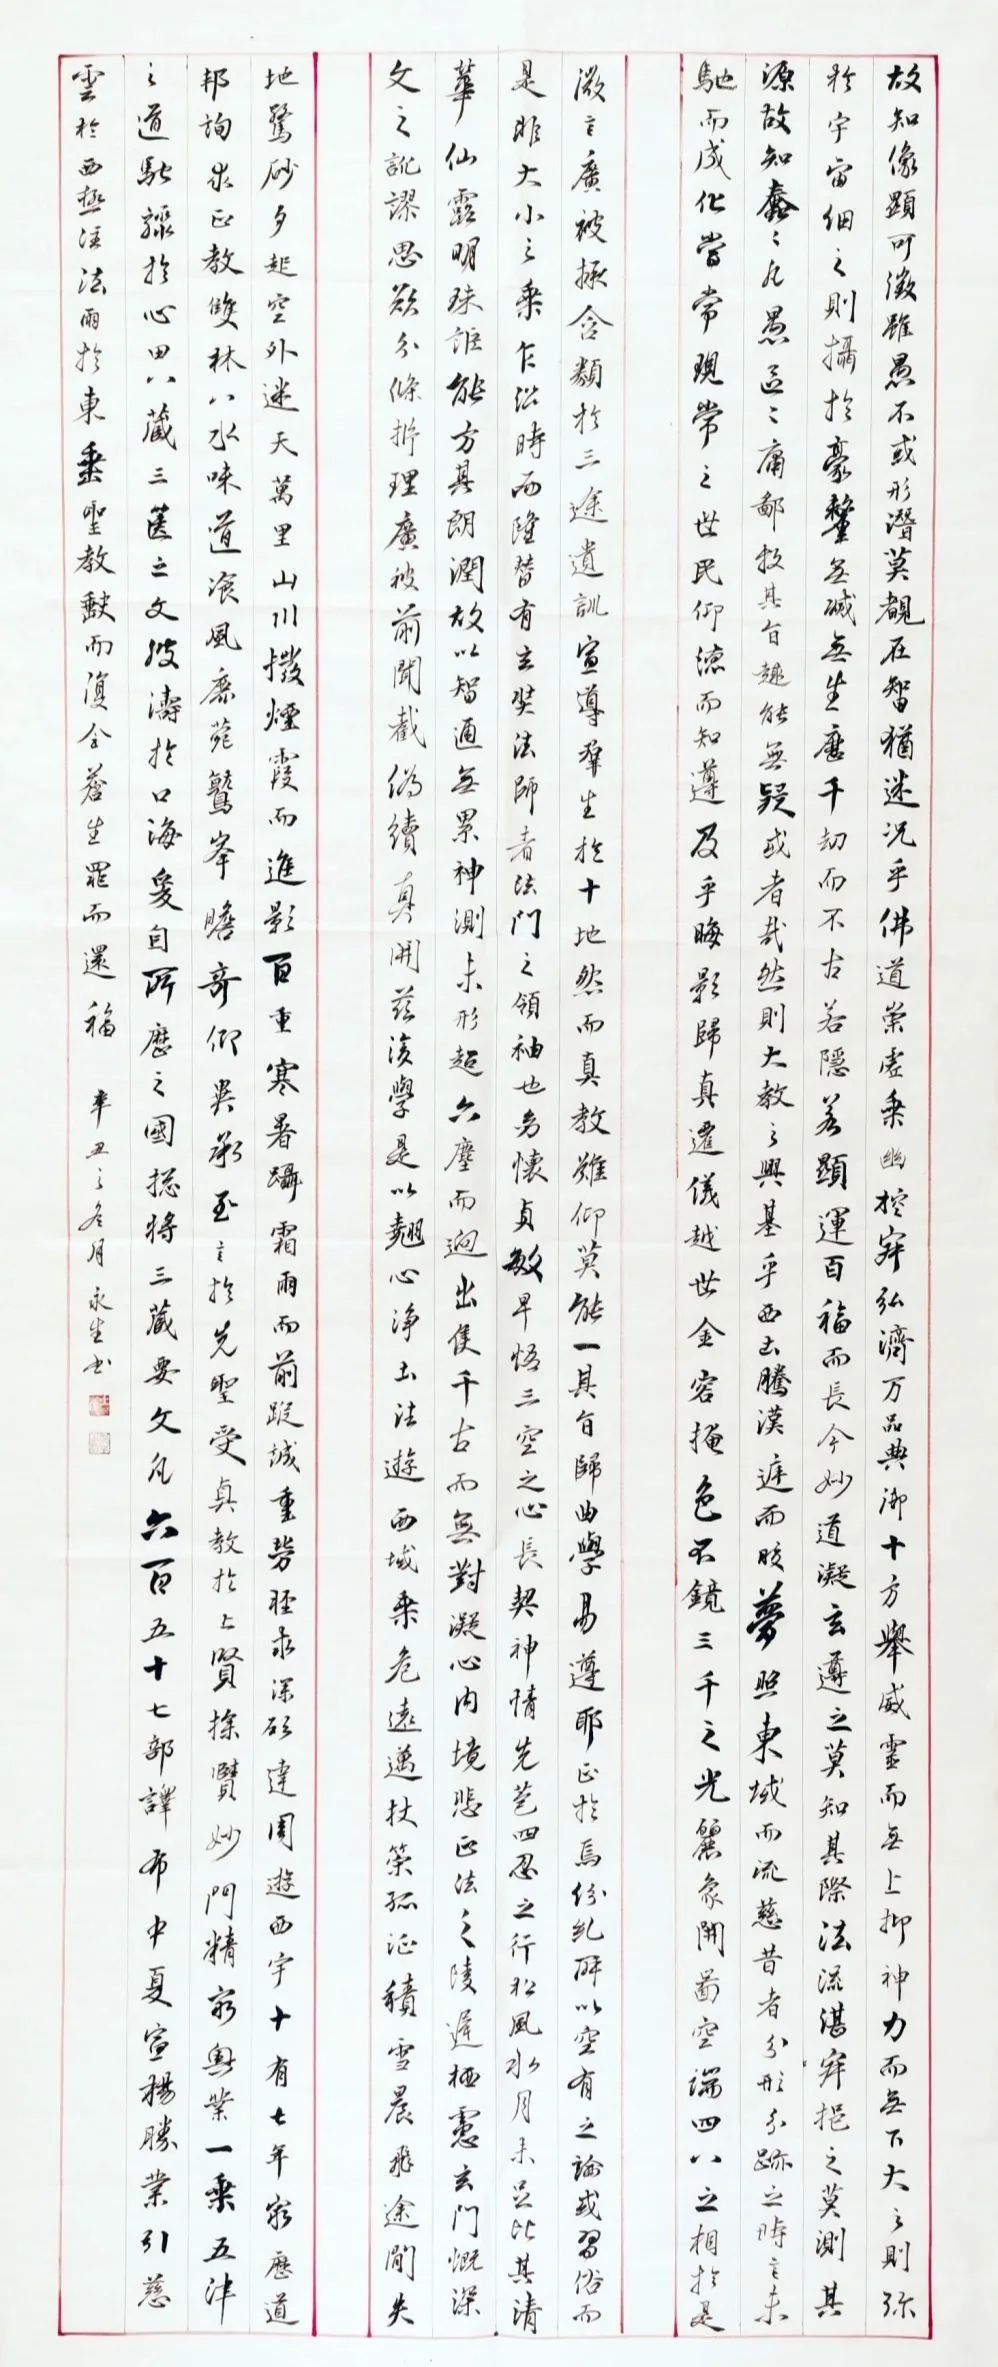 故知像顯可徵雖愚不或形潛莫覩在智猶迷況乎佛道崇虛乘幽控寂弘濟万品典御十方舉威靈而無上抑神力而無下大之則彌
於宇宙細之則攝於豪釐無滅無生歷千劫而不古若隱若顯運百福而長今妙道凝玄遵之莫知其際法流湛寂挹之莫測其
源故知蠢〻凡愚區〻庸鄙投其旨趣能無疑或者哉然則大教之興基乎西土騰漢庭而皎夢照東域而流慈昔者分形分跡之時言未
馳而成化當常現常之世民仰德而知遵及乎晦影歸真遷儀越世金容掩色不鏡三千之光麗象開圖空端四八之相於是
微言廣被拯含類於三途遺訓宣導羣生於十地然而真教難仰莫能一其旨歸曲學易遵耶正於焉紛糺所以空有之論或習俗而
是非大小之乘乍沿時而隆替有玄奘法師者法門之領袖也幼懷貞敏早悟三空之心長契神情先苞四忍之行松風水月未足比其清
華仙露明珠詎能方其朗潤故以智通無累神測未形超六塵而迥出隻千古而無對凝心內境悲正法之陵遲栖慮玄門慨深
文之訛謬思欲分條析理廣被前聞截偽續真開茲後學是以翹心淨土法遊西域乘危遠邁杖策孤征積雪晨飛途閒失
地驚砂夕起空外迷天萬里山川撥煙霞而進影百重寒暑躡霜雨而前蹤誠重勞輕求深願達周遊西宇十有七年窮歷道
邦詢求正教雙林八水味道飡風鹿菀鷲峯瞻奇仰異承至言於先聖受真教於上賢探賾妙門精窮奧業一乘五律
之道馳驟於心田八藏三篋之文波濤於口海爰自所歷之國總將三藏要文凡六百五十七部譯布中夏宣揚勝業引慈
雲於西極注法雨於東垂聖教缺而復全蒼生罪而還福 辛丑之冬月永生书